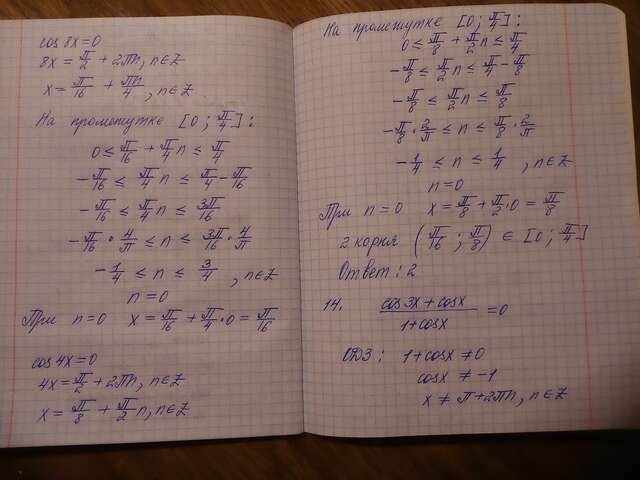 cos 8x = 0
8x = π/2 + 2πn, n∈Z
x = π/16 + πn/4, n∈Z
На промежутке [0; π/4]:
0 ≤ π/16 + π/4 n ≤ π/4
-π/16 ≤ π/4 n ≤ π/4 - π/16
-π/16 ≤ π/4 n ≤ 3π/16
-π/16 · 4/π ≤ n ≤ 3π/16 · 4/π
-1/4 ≤ n ≤ 3/4, n∈Z
n = 0
При n=0 x = π/16 + π/4 · 0 = π/16
cos 4x = 0
4x = π/2 + 2πn, n∈Z
x = π/8 + π/2 n, n∈Z
На промежутке [0; π/4]:
0 ≤ π/8 + π/2 n ≤ π/4
-π/8 ≤ π/2 n ≤ π/4 - π/8
-π/8 ≤ π/2 n ≤ π/8
-π/8 · 2/π ≤ n ≤ π/8 · 2/π
-1/4 ≤ n ≤ 1/4, n∈Z
n = 0
При n=0 x = π/8 + π/2 · 0 = π/8
2 корня (π/16; π/8) ∈ [0; π/4]
Ответ: 2
14. (cos 3x + cos x)/(1 + cos x) = 0
ОДЗ: 1 + cos x ≠ 0
cos x ≠ -1
x ≠ π + 2πn, n∈Z